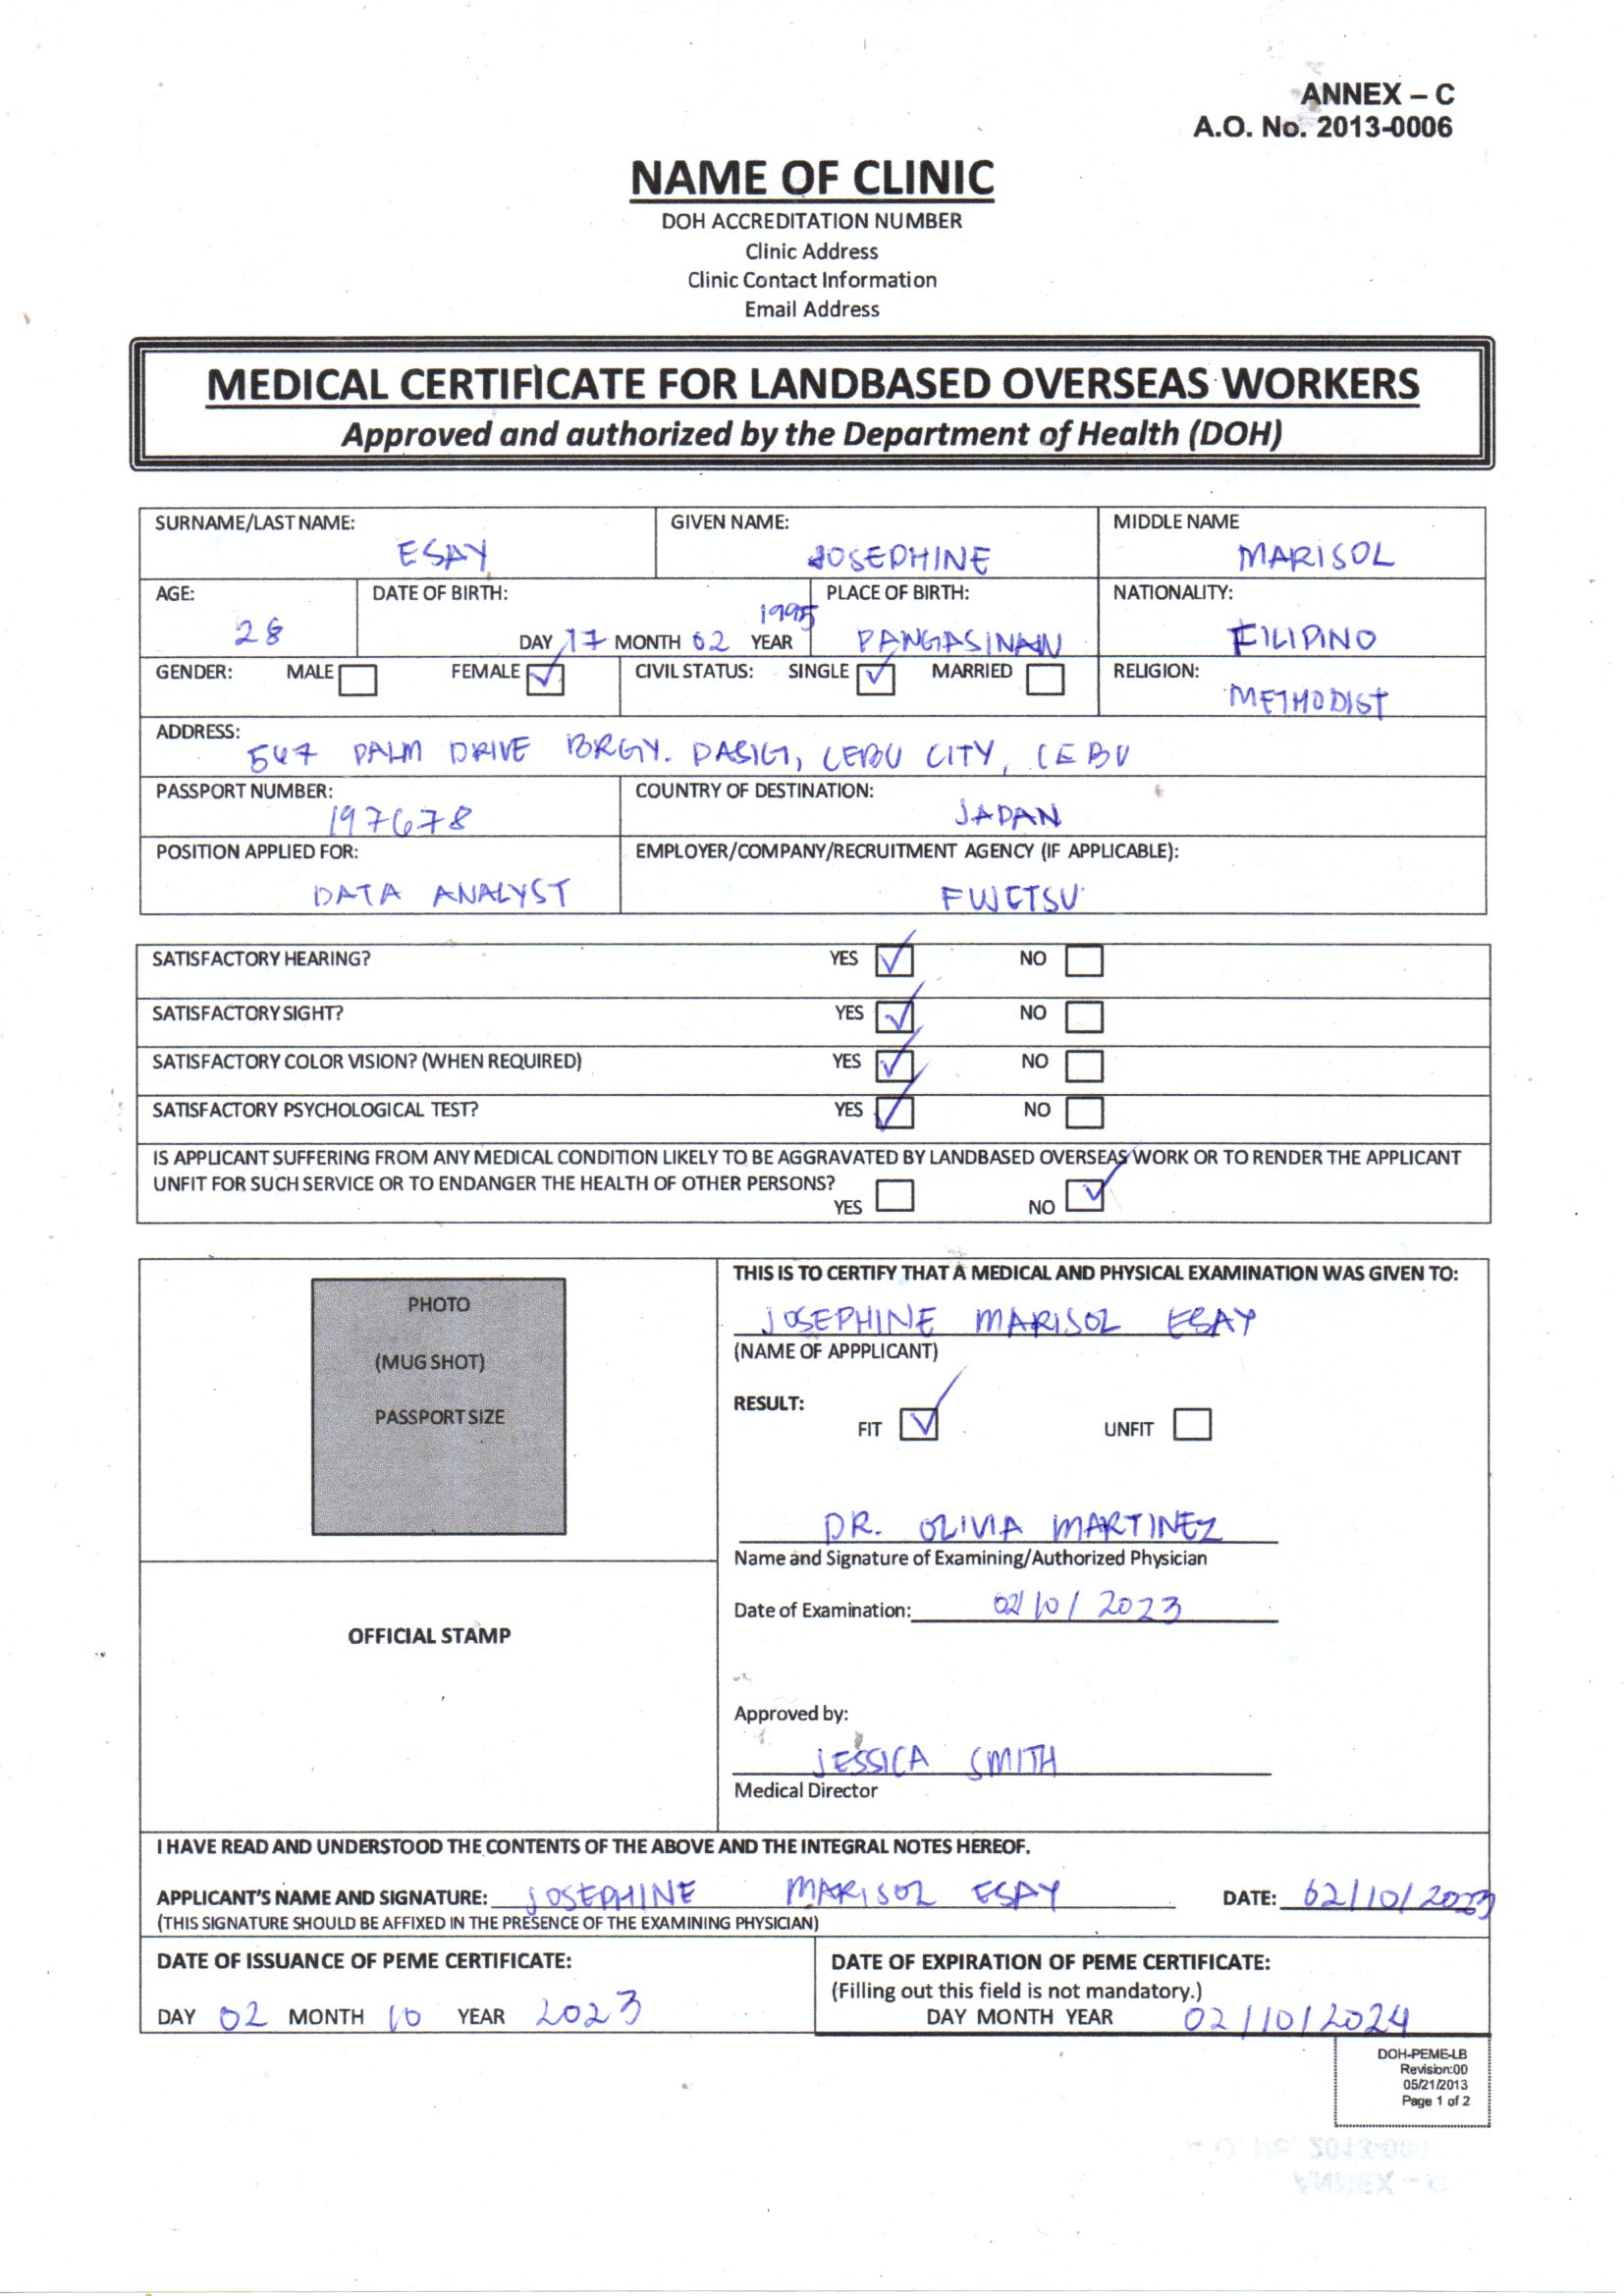 ANNEX – C
A.O. No. 2013-0006
NAME OF CLINIC
DOH ACCREDITATION NUMBER
Clinic Address
Clinic Contact Information
Email Address
MEDICAL CERTIFICATE FOR LANDBASED OVERSEAS WORKERS
Approved and authorized by the Department of Health (DOH)
SURNAME/LAST NAME: GIVEN NAME: MIDDLE NAME
ESAY JOSEPHINE MARISOL
AGE: DATE OF BIRTH: PLACE OF BIRTH: NATIONALITY:
28 DAY 17 MONTH 02 YEAR 1995 PANGASINAN FILIPINO
GENDER: MALE FEMALE ✓ CIVIL STATUS: SINGLE ✓ MARRIED RELIGION:
METHODIST
ADDRESS:
547 PALM DRIVE BRGY. PASIG, CEBU CITY, CEBU
PASSPORT NUMBER: COUNTRY OF DESTINATION:
197678 JAPAN
POSITION APPLIED FOR: EMPLOYER/COMPANY/RECRUITMENT AGENCY (IF APPLICABLE):
DATA ANALYST
SATISFACTORY HEARING? YES ✓ NO
SATISFACTORY SIGHT? YES ✓ NO
SATISFACTORY COLOR VISION? (WHEN REQUIRED) YES ✓ NO
SATISFACTORY PSYCHOLOGICAL TEST? YES ✓ NO
IS APPLICANT SUFFERING FROM ANY MEDICAL CONDITION LIKELY TO BE AGGRAVATED BY LANDBASED OVERSEAS WORK OR TO RENDER THE APPLICANT
UNFIT FOR SUCH SERVICE OR TO ENDANGER THE HEALTH OF OTHER PERSONS?
YES NO ✓
PHOTO
(MUG SHOT)
PASSPORT SIZE
OFFICIAL STAMP
THIS IS TO CERTIFY THAT A MEDICAL AND PHYSICAL EXAMINATION WAS GIVEN TO:
JOSEPHINE MARISOL ESAY
(NAME OF APPPLICANT)
RESULT:
FIT ✓ UNFIT
DR. OLIVIA MARTINEZ
Name and Signature of Examining/Authorized Physician
Date of Examination: 02/10/2023
Approved by:
JESSICA SMITH
Medical Director
I HAVE READ AND UNDERSTOOD THE CONTENTS OF THE ABOVE AND THE INTEGRAL NOTES HEREOF.
APPLICANT'S NAME AND SIGNATURE: JOSEPHINE MARISOL ESAY DATE: 02/10/2023
(THIS SIGNATURE SHOULD BE AFFIXED IN THE PRESENCE OF THE EXAMINING PHYSICIAN)
DATE OF ISSUANCE OF PEME CERTIFICATE: DATE OF EXPIRATION OF PEME CERTIFICATE:
(Filling out this field is not mandatory.)
DAY 02 MONTH 10 YEAR 2023 DAY MONTH YEAR 02/10/2024
DOH-PEME-LB
Revision:00
05/21/2013
Page 1 of 2